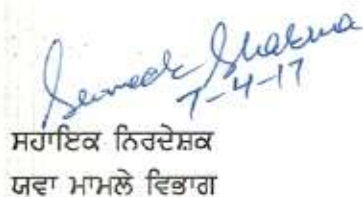 Sharma
7-4-17
ਸਹਾਇਕ ਨਿਰਦੇਸ਼ਕ
ਯੁਵਾ ਮਾਮਲੇ ਵਿਭਾਗ